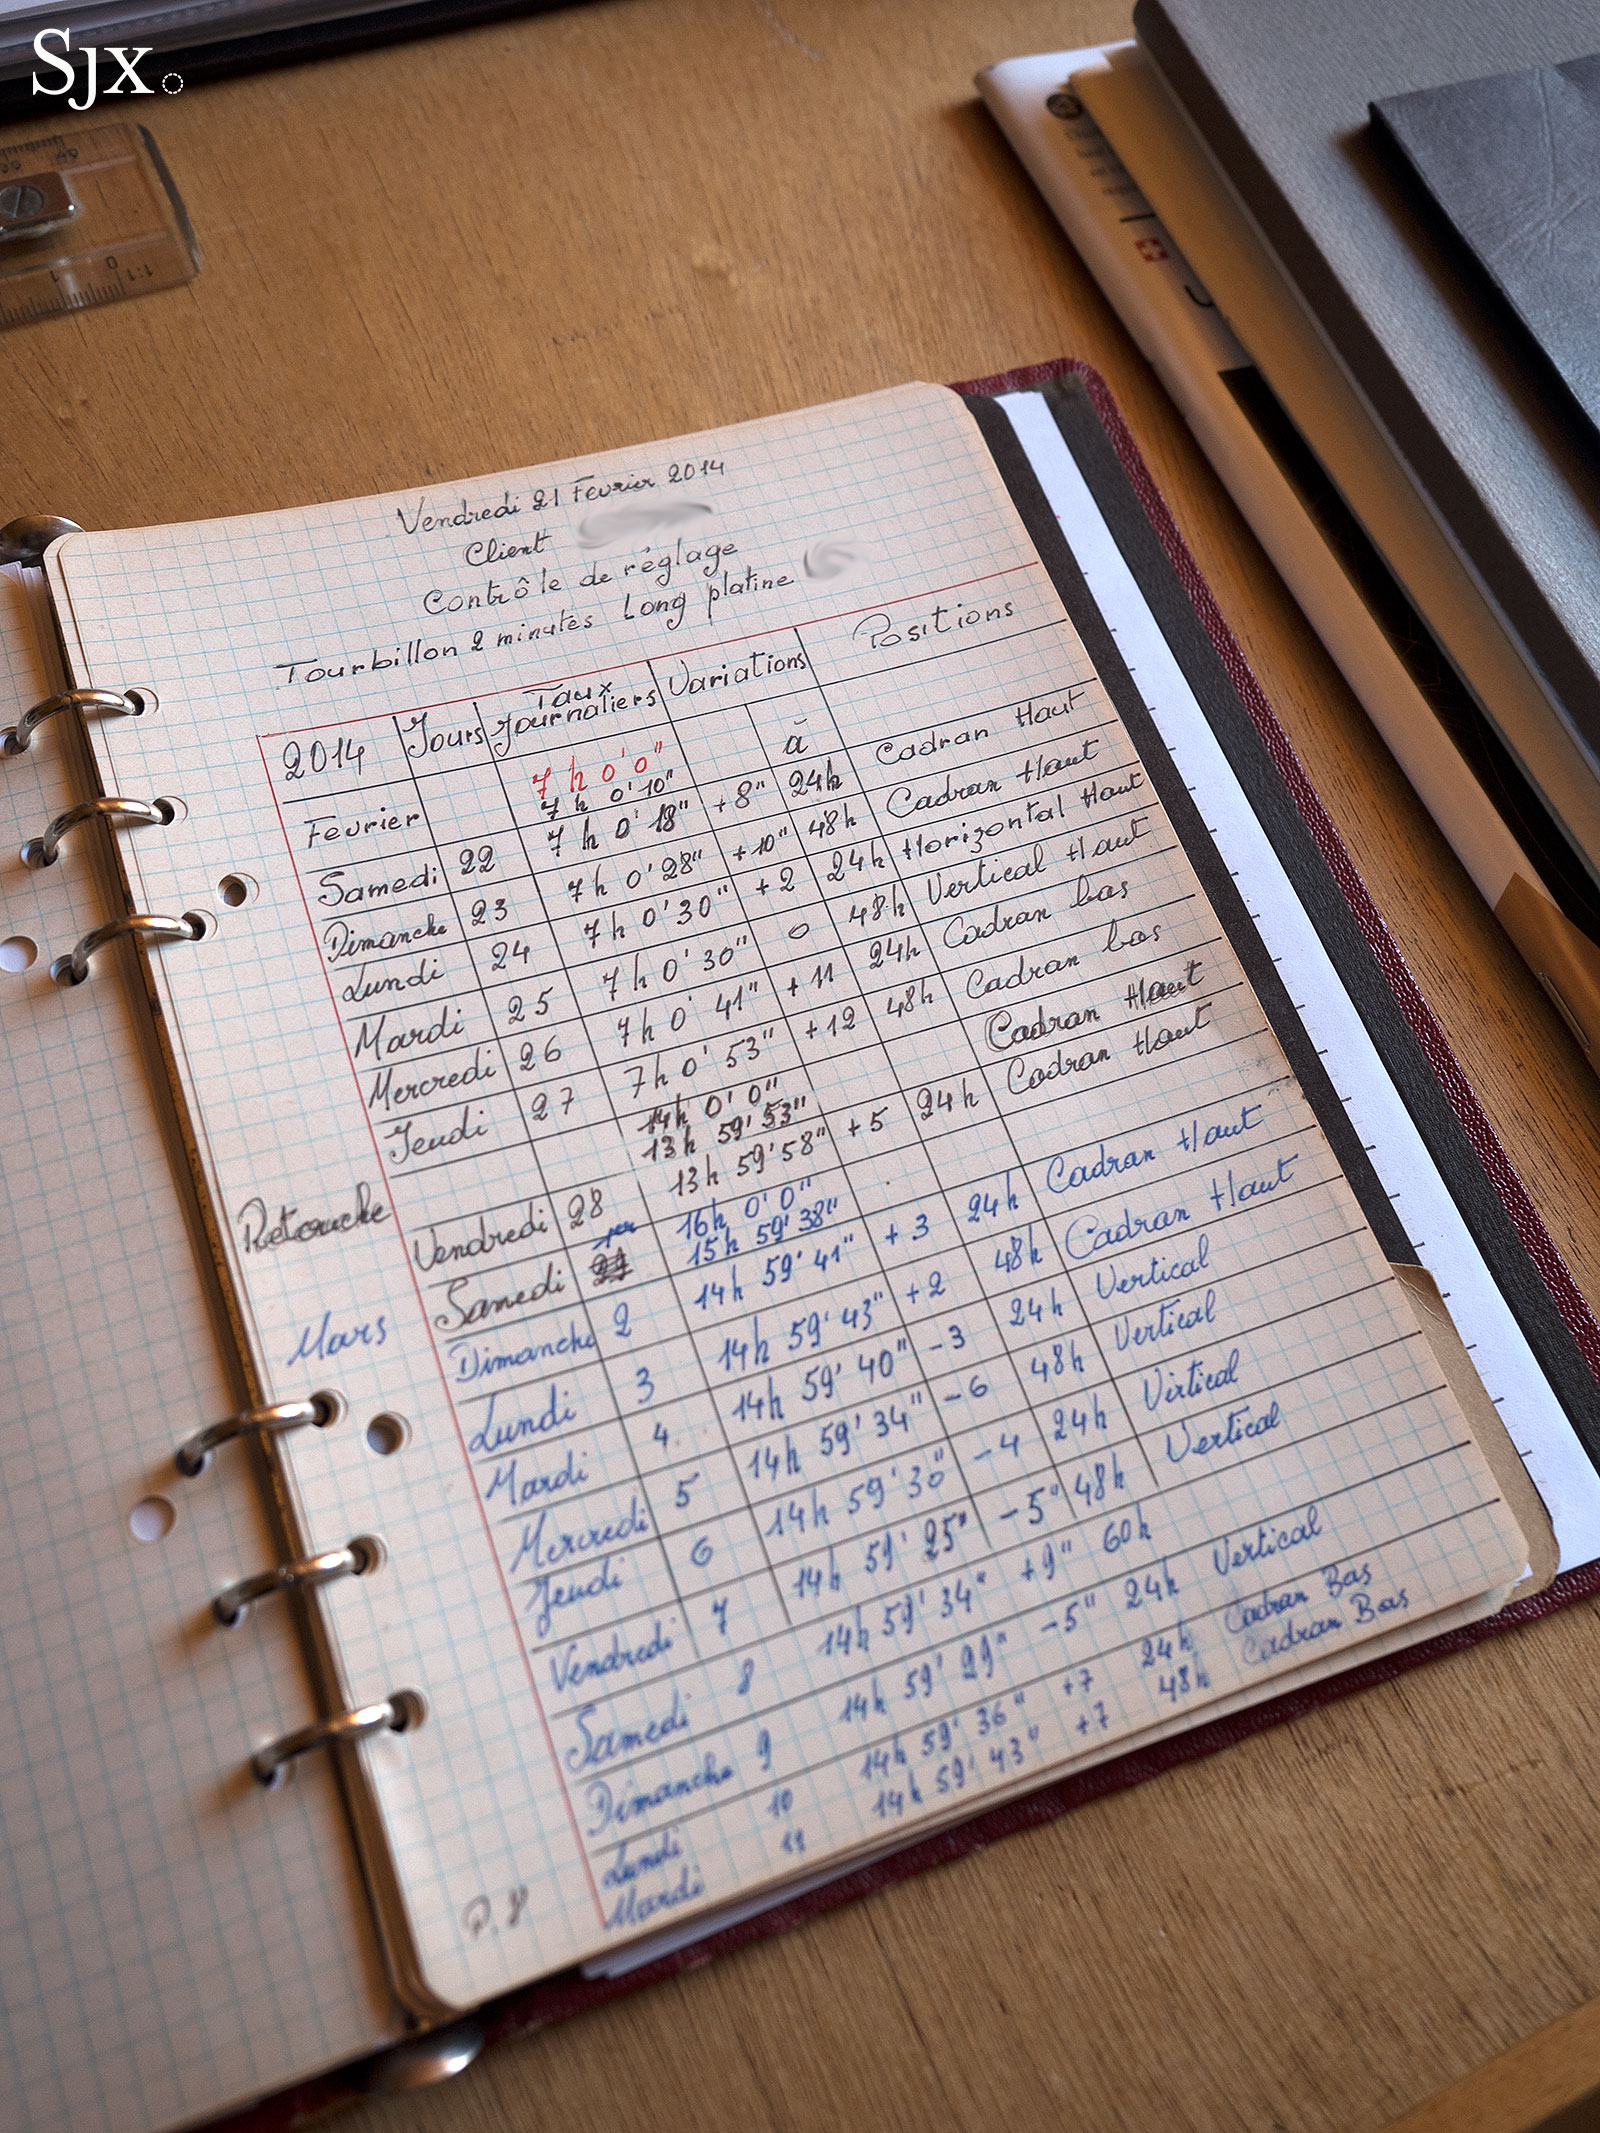 Sjx.
Vendredi 21 Fevrier 2014
Client
Contrôle de réglage
Tourbillon 2 minutes Long platine
2014 Jours Taux Journaliers Variations Positions
7 h 0' 0"
Fevrier 7 h 0' 10" à
Samedi 22 7 h 0' 18" + 8" 24h Cadran Haut
Dimanche 23 7 h 0' 28" + 10" 48h Cadran Haut
Lundi 24 7 h 0' 30" + 2 24h Horizontal Haut
Mardi 25 7 h 0' 30" 0 48h Vertical Haut
Mercredi 26 7 h 0' 41" + 11 24h Cadran bas
Jeudi 27 7 h 0' 53" + 12 48h Cadran bas
14h 0' 0"
Retouche Vendredi 28 13h 59' 53" Cadran Haut
Samedi 1er 13h 59' 58" + 5 24h Cadran Haut
16h 0' 0"
Mars 15h 59' 38"
Dimanche 2 14h 59' 41" + 3 24h Cadran Haut
Lundi 3 14h 59' 43" + 2 48h Cadran Haut
Mardi 4 14h 59' 40" - 3 24h Vertical
Mercredi 5 14h 59' 34" - 6 48h Vertical
Jeudi 6 14h 59' 30" - 4 24h Virtical
Vendredi 7 14h 59' 25" - 5" 48h Vertical
Samedi 8 14h 59' 34" + 9" 60h
Dimanche 9 14h 59' 29" - 5" 24h Vertical
Lundi 10 14h 59' 36" + 7 24h Cadran Bas
Mardi 11 14h 59' 43" + 7 48h Cadran Bas
P. 8
0 1:1
1